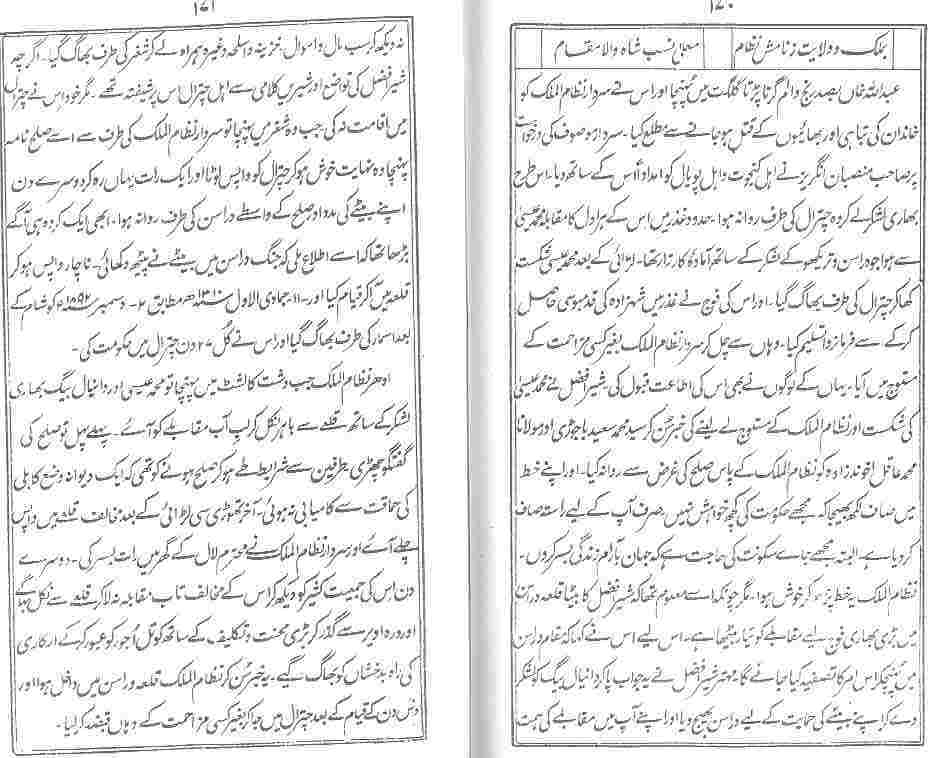 ۱۷۰
بملک و ولایت ز نامش نظام
معلی نسب شاہ والا مقام
عبداللہ خاں بصد رنج و الم گرتا پڑتا گلگت میں پہنچا اور اس نے سردار نظام الملک کو
خاندان کی تباہی اور بھائیوں کے قتل ہو جانے سے مطلع کیا۔ سردار موصوف کی درخواست
پر صاحب منصبان انگریز نے اہل کنجوت و اہل پونیال کو امداداً اس کے ساتھ دیا۔ اس طرح
بھاری لشکر لے کر وہ چترال کی طرف روانہ ہوا۔ حدود غذر میں اس کے ہراول کا مقابلہ محمد عیسیٰ
سے ہوا جو دراسن و تریکھو کے لشکر کے ساتھ آمادۂ کارزار تھا۔ لڑائی کے بعد محمد عیسیٰ شکست
کھا کر چترال کی طرف بھاگ گیا۔ اور اس کی فوج نے غذر میں شہزادہ کی قدمبوسی حاصل
کر کے اسے فرمانروا تسلیم کیا۔ وہاں سے چل کر سردار نظام الملک بغیر کسی مزاحمت کے
مستوج میں آیا۔ یہاں کے لوگوں نے بھی اس کی اطاعت قبول کی۔ شیر افضل نے محمد عیسیٰ
کی شکست اور نظام الملک کے مستوج لے لینے کی خبر سن کر سید محمد سعید باجوڑی اور مولانا
محمد عاقل اخوندزادہ کو نظام الملک کے پاس صلح کی غرض سے روانہ کیا۔ اور اپنے خط
میں صاف لکھ بھیجا کہ مجھے حکومت کی کچھ خواہش نہیں۔ صرف آپ کے لیے راستہ صاف
کر دیا ہے۔ البتہ مجھے جائے سکونت کی حاجت ہے کہ جہاں بآرام زندگی بسر کروں۔
نظام الملک یہ خط پڑھ کر خوش ہوا۔ مگر چونکہ اسے معلوم تھا کہ شیر افضل کا بیٹا قلعہ دراسن
میں بڑی بھاری فوج لیے مقابلے کو تیار بیٹھا ہے۔ اس لیے اس نے کہا کہ مقام دراسن
میں پہنچ کر اس امر کا تصفیہ کیا جائے گا۔ مہتر شیر افضل نے یہ جواب پا کر دانیال بیگ کو لشکر
دے کر اپنے بیٹے کی حمایت کے لیے دراسن بھیج دیا اور اپنے آپ میں مقابلے کی ہمت
۱۷۱
نہ دیکھ کر سب مال و اموال، خزینہ و اسلحہ وغیرہ ہمراہ لے کر شغر کی طرف بھاگ گیا۔ اگرچہ
شیر افضل کی تواضع اور شیریں کلامی سے اہل چترال اس پر شیفتہ تھے۔ مگر خود اس نے چترال
میں اقامت نہ کی جب وہ شغر میں پہنچا تو سردار نظام الملک کی طرف سے اسے صلح نامہ
پہنچا وہ نہایت خوش ہو کر چترال کو واپس لوٹا اور ایک رات یہاں رہ کر دوسرے دن
اپنے بیٹے کی مدد اور صلح کے واسطے دراسن کی طرف روانہ ہوا۔ ابھی ایک کروہ ہی آگے
بڑھا تھا کہ اسے اطلاع ملی کہ جنگ دراسن میں بیٹے نے پیٹھ دکھائی۔ ناچار واپس ہو کر
قلعہ میں آ کر قیام کیا اور۔ ۱۱۔ جمادی الاول ۱۳۱۰ھ مطابق ۲۔ دسمبر ۱۸۹۲ء کو شام کے
بعد اسمار کی طرف بھاگ گیا اور اس نے کُل ۲۷ دن چترال میں حکومت کی۔
ادھر نظام الملک جب دشت کالشٹ میں پہنچا تو محمد عیسیٰ اور دانیال بیگ بھاری
لشکر کے ساتھ قلعے سے باہر نکل کر لب آب مقابلے کو آئے۔ پہلے پہل تو صلح کی
گفتگو چھڑی۔ طرفین سے شرائط طے ہو کر صلح ہونے کو تھی کہ ایک دیوانہ وضع کابلی
کی حماقت سے کامیابی نہ ہوئی۔ آخر تھوڑی سی لڑائی کے بعد مخالف قلعہ میں واپس
چلے آئے اور سردار نظام الملک نے محترم لال کے گھر میں رات بسر کی۔ دوسرے
دن اس کی جمیعت کثیر کو دیکھ کر اس کے مخالف تاب مقابلہ نہ لا کر قلعہ سے نکل بھاگے
اور درہ اویر سے گذر کر بڑی محنت و تکلیف کے ساتھ کوتل اُجور کو عبور کر کے ارکاری
کی راہ بدخشاں کو بھاگ گئے۔ یہ خبر سن کر نظام الملک قلعہ دراسن میں داخل ہوا اور
دس دن کے قیام کے بعد چترال میں جا کر بغیر کسی مزاحمت کے وہاں قبضہ کر لیا۔